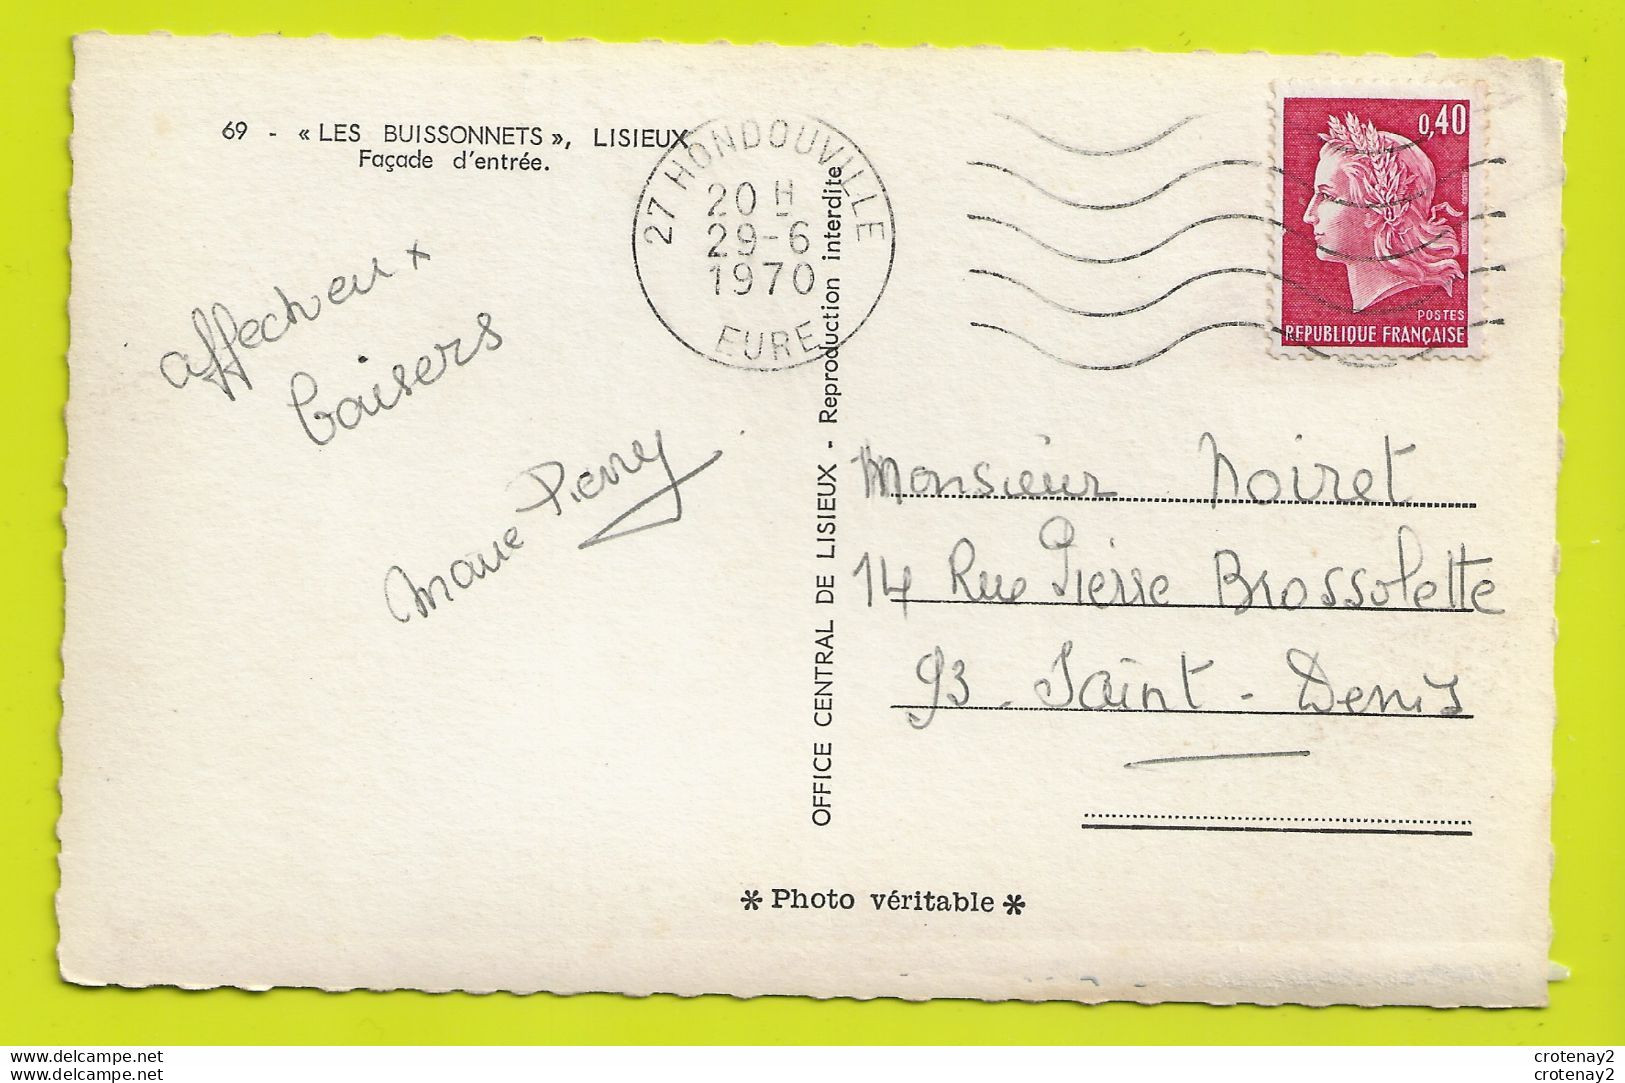 69 - « LES BUISSONNETS », LISIEUX
Façade d'entrée.
27 HONDOUVILLE
20 H
29-6
1970
EURE
0,40
POSTES
REPUBLIQUE FRANÇAISE
affectueux
baisers
Marie Pierre
OFFICE CENTRAL DE LISIEUX - Reproduction interdite
Monsieur Noiret
14 Rue Pierre Brossolette
93 - Saint - Denis
* Photo véritable *
www.delcampe.net
www.delcampe.net
crotenay2
crotenay2